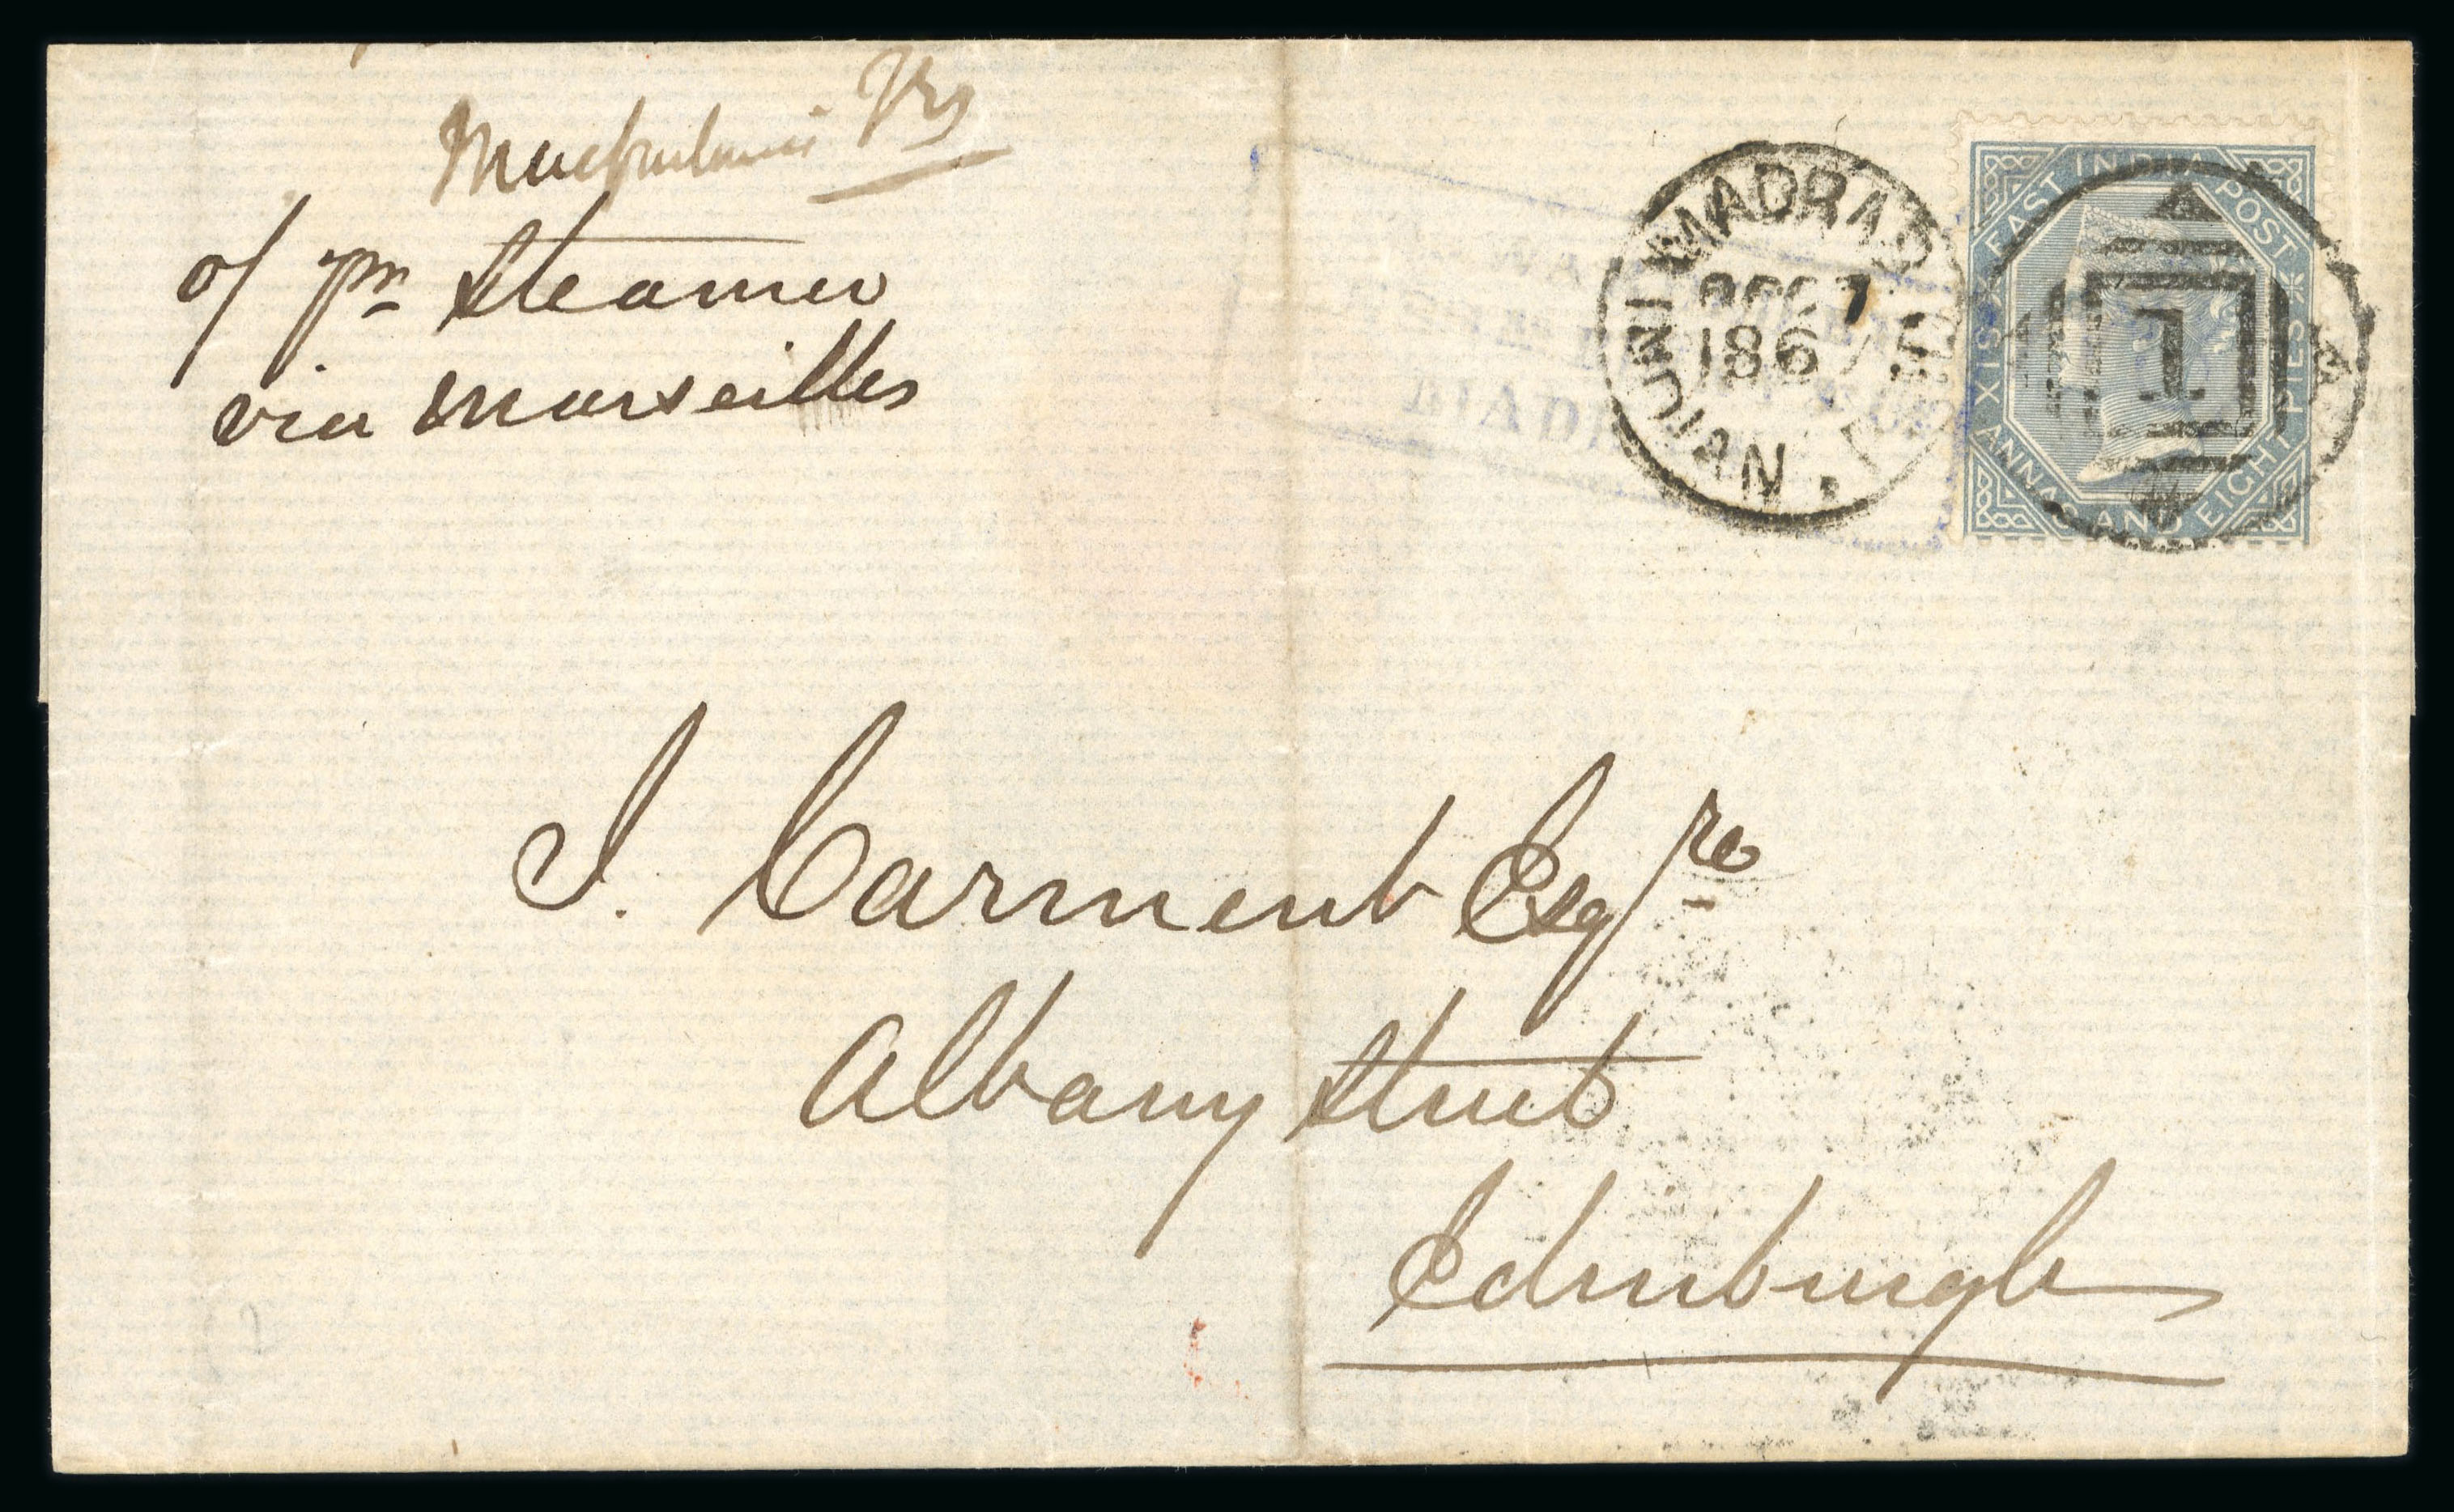 o/ pr Steamer
via Marseilles
MADRAS
OCT 7
186
EAST INDIA POSTAGE
SIX ANNAS AND EIGHT PIES
1
MADR
J. Carment Esqre
Albany Street
Edinburgh